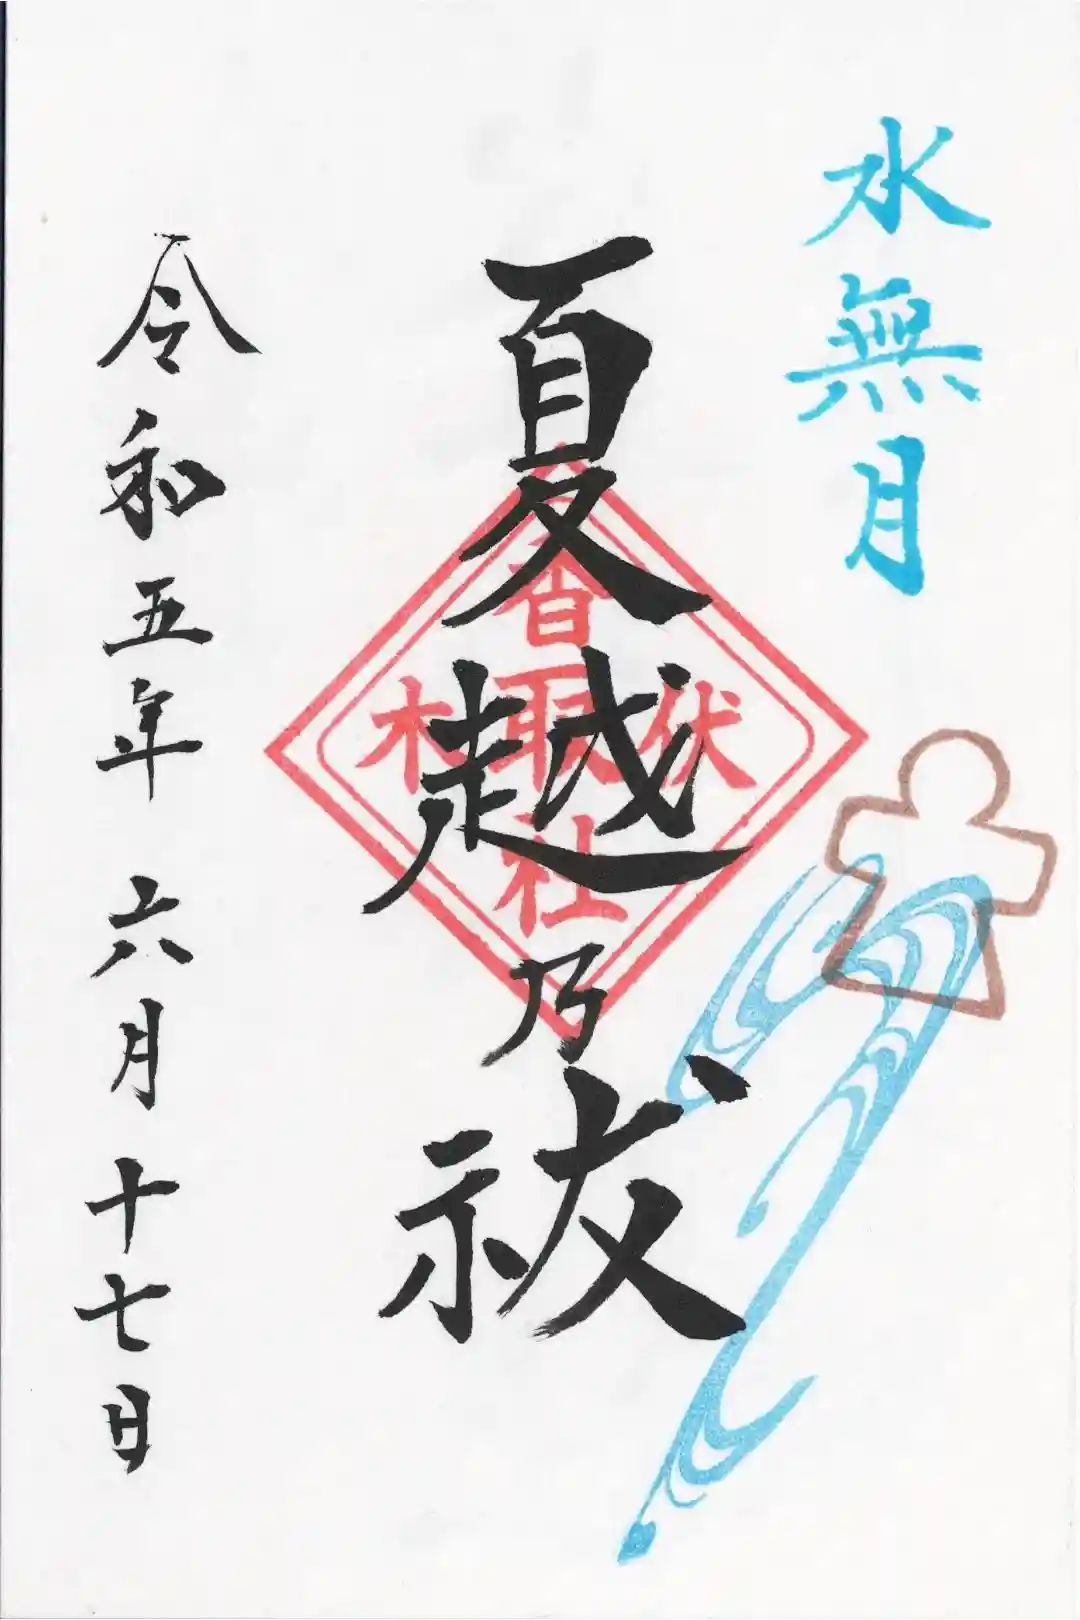 水無月
夏越乃祓
伏木
香取社
令和五年六月十七日